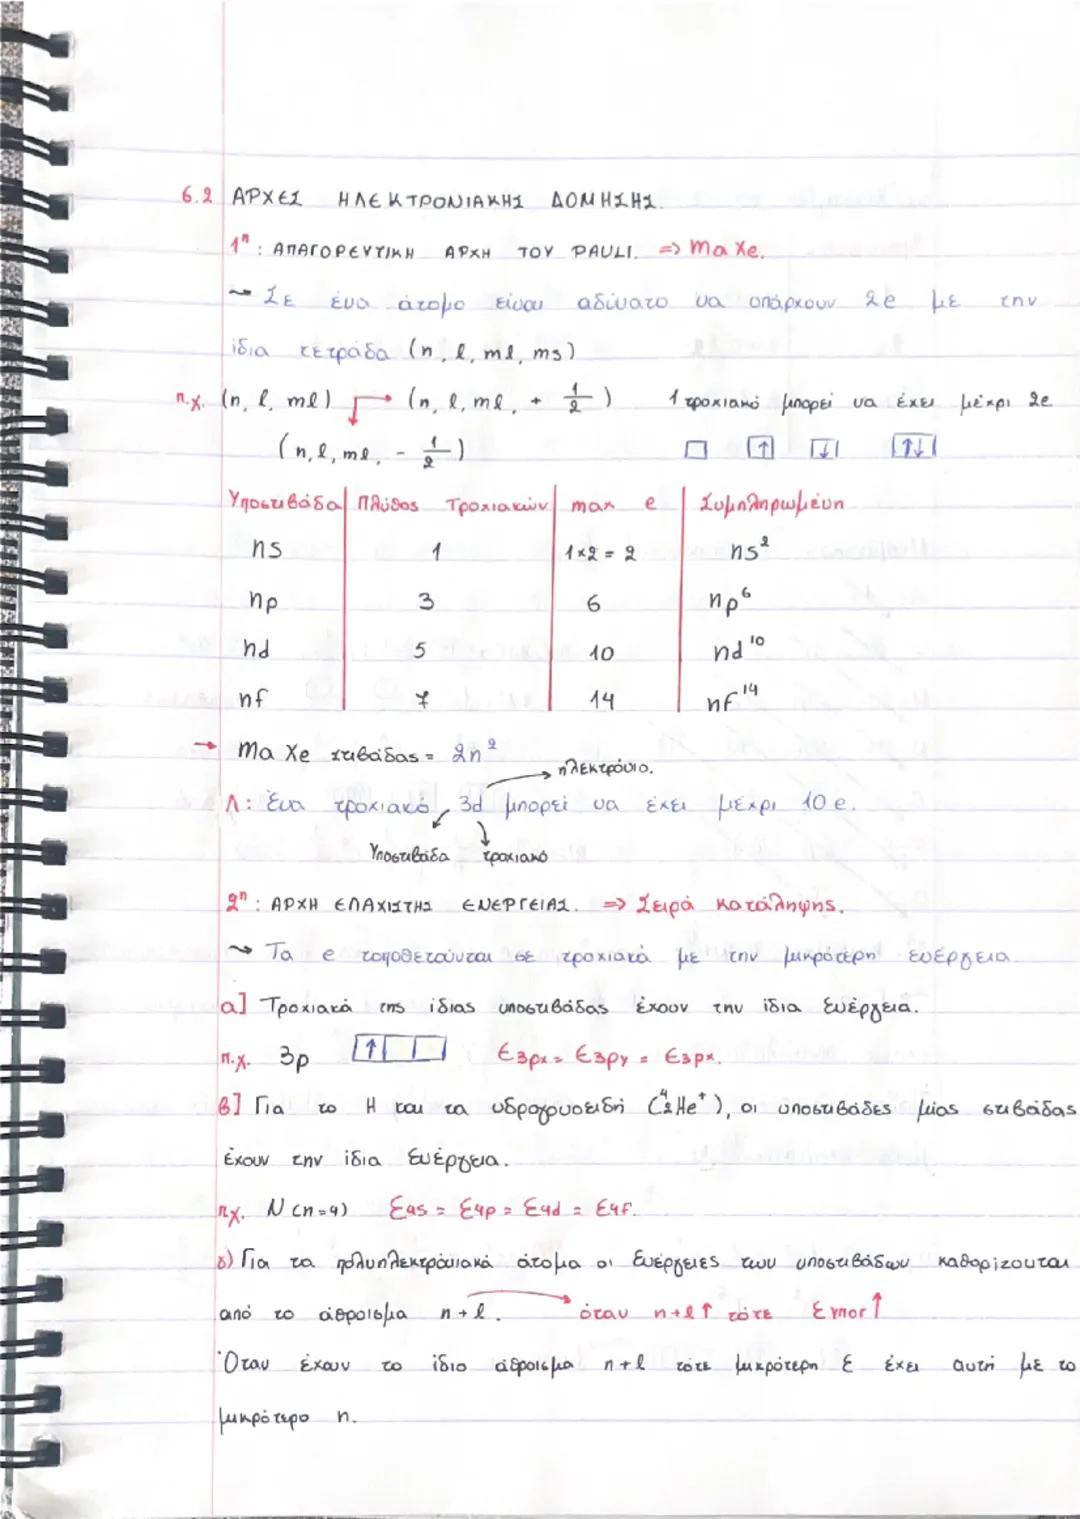 6.2 ΑΡΧΕΣ ΗΛΕΚΤΡΟΝΙΑΚΗΣ ΔΟΜΗΣΗΣ.
1η: ΑΠΑΓΟΡΕΥΤΙΚΗ ΑΡΧΗ ΤΟΥ PAULI. => maxe.
~ Σε ένα άτομο είναι αδύνατο να υπάρχουν 2e με την
ίδια τετράδα (n, l, ml, ms)
π.χ. (n, l, ml) → (n, l, ml, + 1/2) 1 τροχιακό μπορεί να έχει μέχρι 2e.
(n, l, ml, - 1/2) □ ↑ ↓ ↑↓
Υποστιβάδα Πλήθος Τροχιακών max e Συμπληρωμένη
ns 1 1×2 = 2 ns²
np 3 6 np⁶
nd 5 10 nd¹⁰
nf 7 14 nf¹⁴
→ maxe στιβάδας = 2n²
ηλεκτρόνιο.
Λ: Ένα τροχιακό 3d μπορεί να έχει μέχρι 10 e.
Υποστιβάδα τροχιακό
2η: ΑΡΧΗ ΕΛΑΧΙΣΤΗΣ ΕΝΕΡΓΕΙΑΣ. => Σειρά κατάληψης.
~ Τα e τοποθετούνται σε τροχιακά με την μικρότερη ενέργεια.
α] Τροχιακά της ίδιας υποστιβάδας έχουν την ίδια ενέργεια.
π.χ. 3p ↑ E3px = E3py = E3px.
β] Για το H και τα υδρογονοειδή (⁴₂He⁺), οι υποστιβάδες μίας στιβάδας
έχουν την ίδια ενέργεια.
πχ. N (n=4) E4s = E4p = E4d = E4f.
γ) Για τα πολυηλεκτρόνιακά άτομα οι ενέργειες των υποστιβάδων καθορίζονται
από το άθροισμα n + l. → όταν n+l↑ τότε Ευποσ↑
Όταν έχουν το ίδιο άθροισμα n + l τότε μικρότερη E έχει αυτή με το
μικρότερο n.